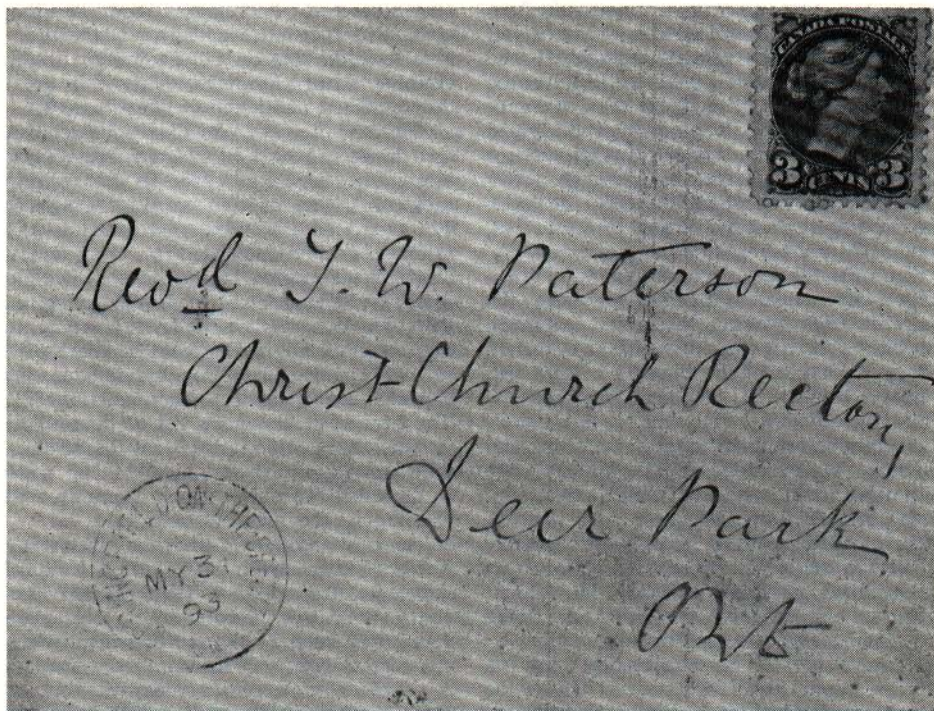 CANADA POSTAGE
3 CENTS 3
Revd T. W. Paterson
Christ Church Rectory,
Deer Park
Ont
ON THE
MY 31
93